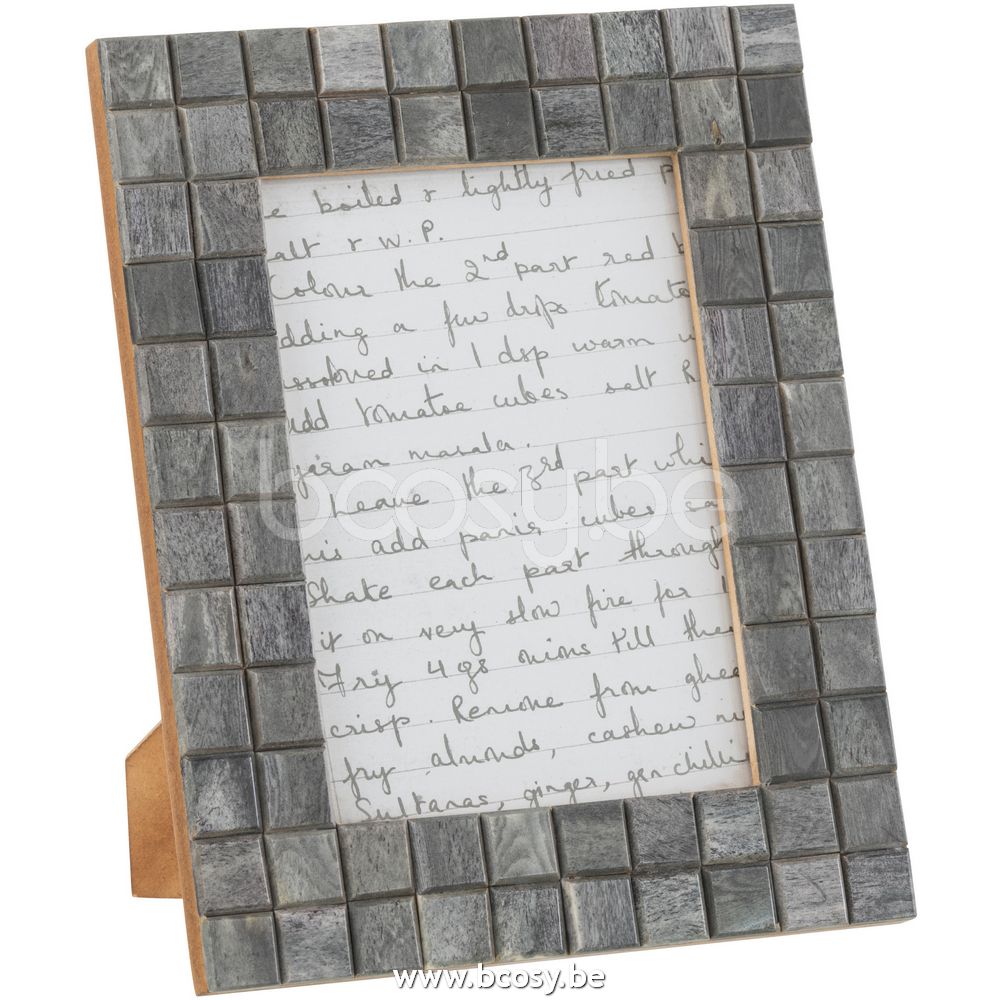 e boiled & lightly fried p
alt & W.P.
Colour the 2nd part red b
dding a few drops tomato
issolved in 1 dsp warm w
Add tomatoe cubes salt R
garam masala.
Leave the 3rd part whi
his add panir cubes sa
Shake each part through
it on very slow fire for 1
Fry 4 gs onions till the
crisp. Remove from ghee
fry almonds, cashew nu
Sultanas, ginger, grn chilli
bcosy.be
www.bcosy.be